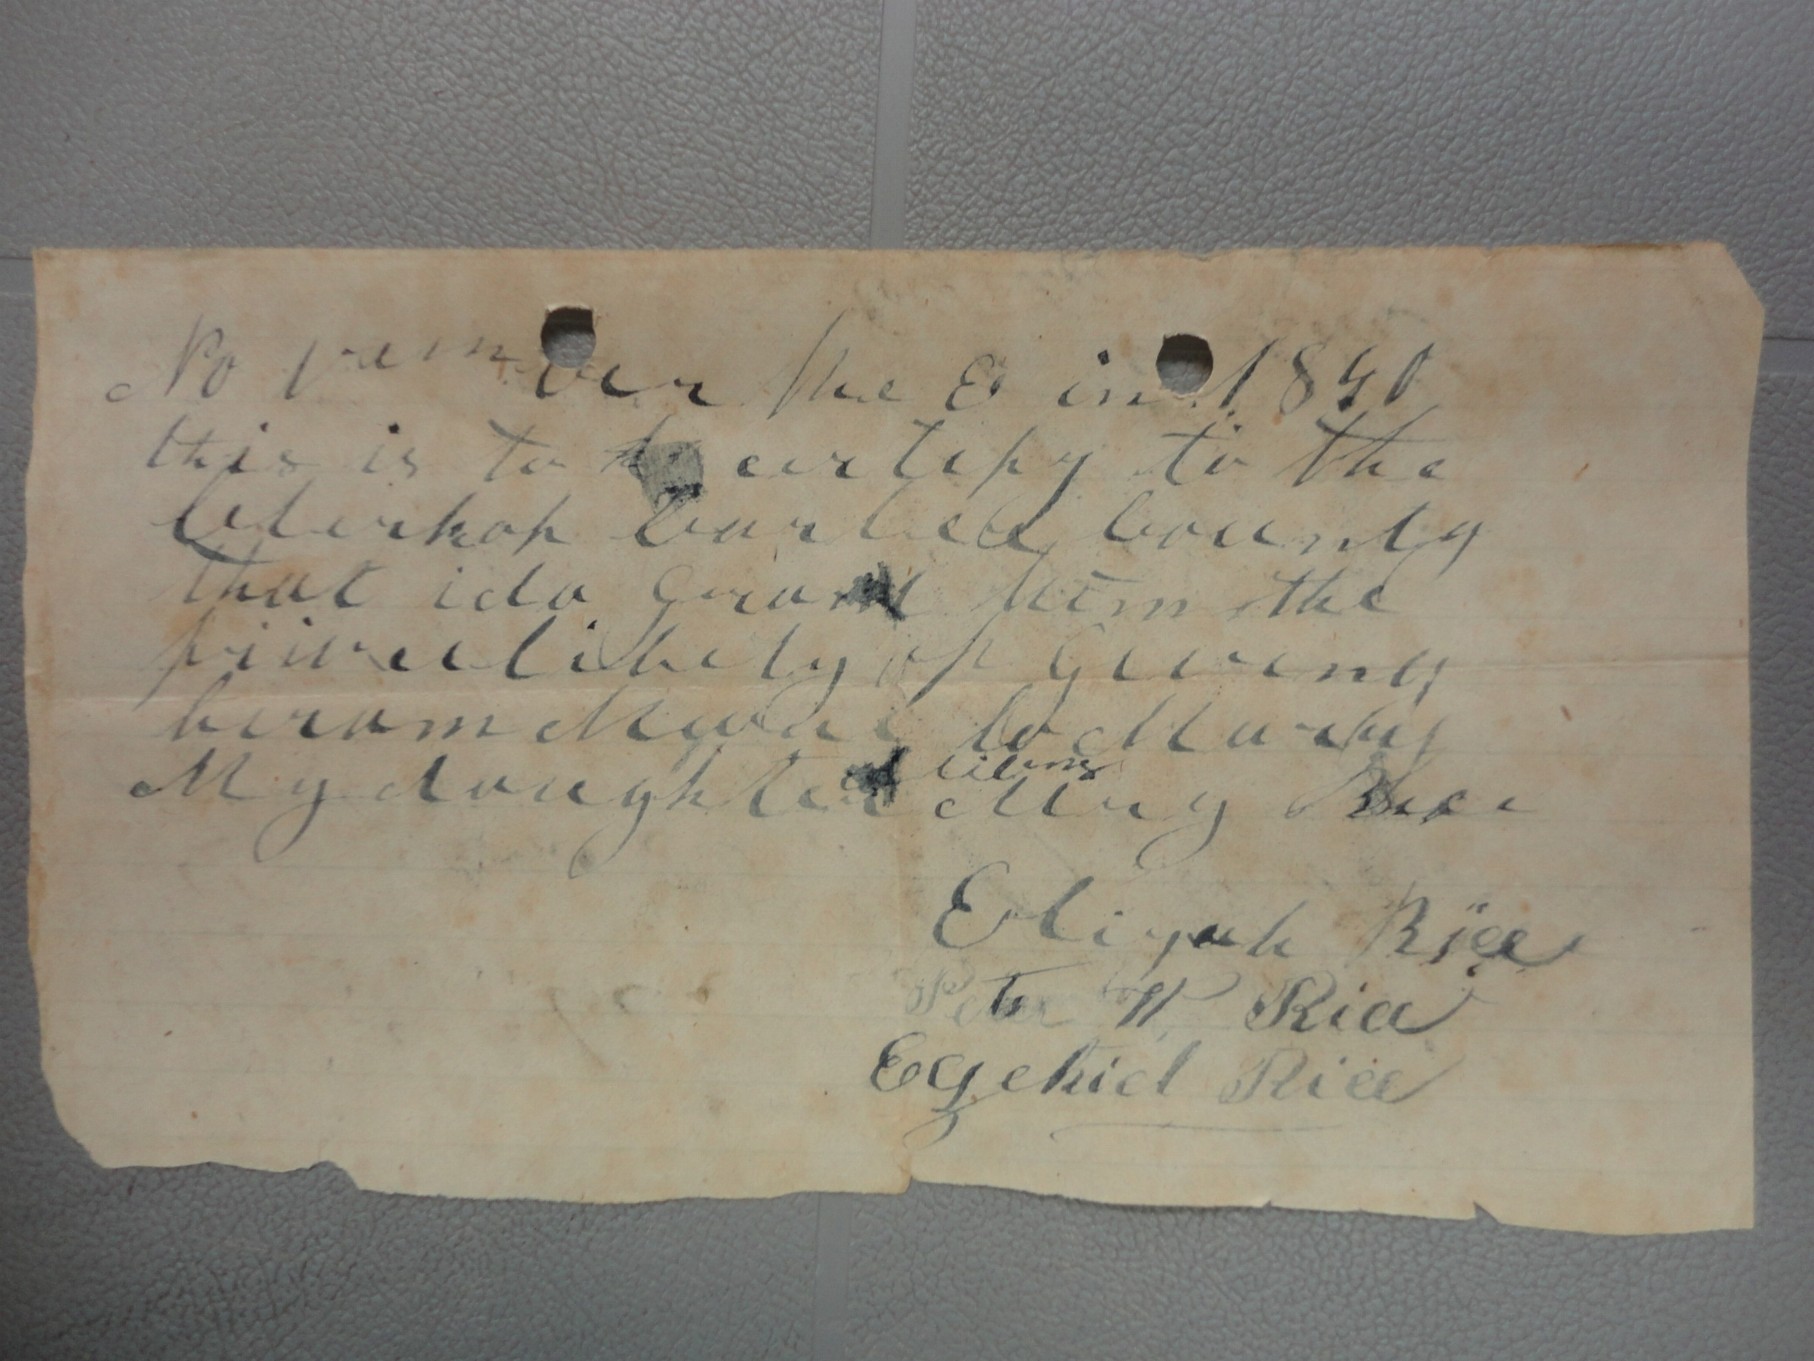 November the 8 in 1840
this is to certefy to the
Clerk of Carter County
that i do grant him the
privelibety of giveing
hiram to Marry
My daughter Mary Rice
Elizah Rice
Peter W Rice
Ezekiel Rice